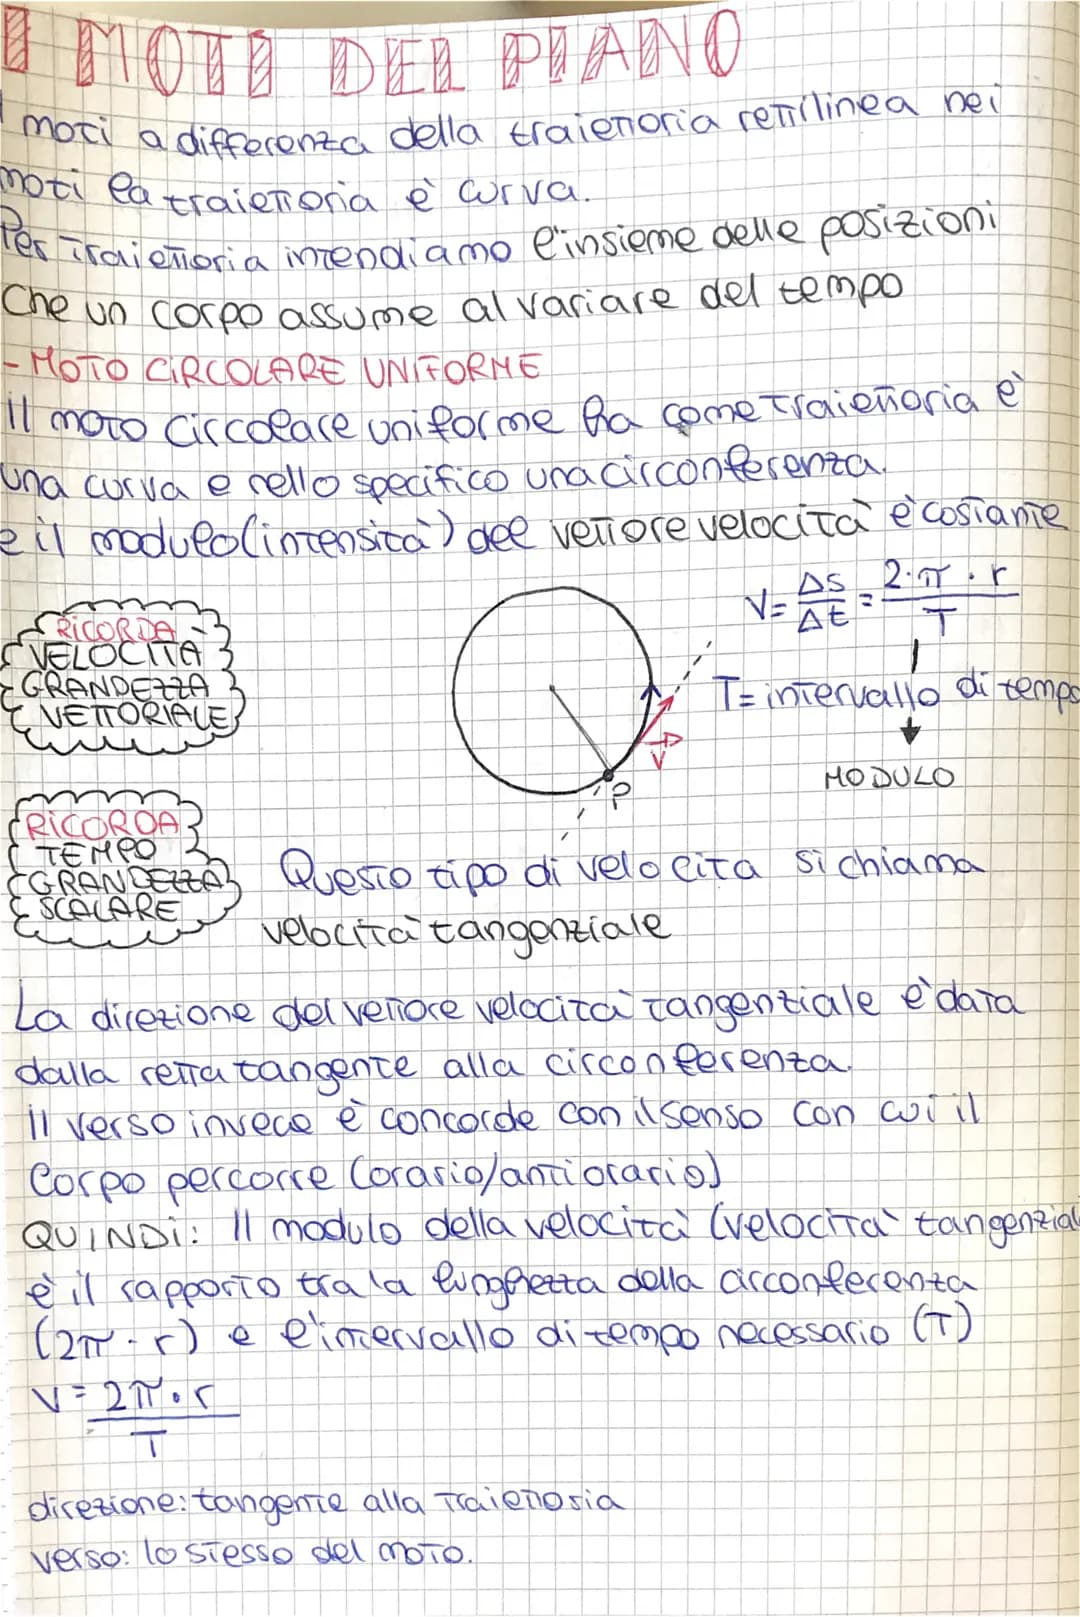 I MOTI DEL PIANO
I moti a differenza della traiettoria rettilinea nei
moti la traiettoria è curva.
Per traiettoria intendiamo l'insieme delle posizioni
che un corpo assume al variare del tempo
- MOTO CIRCOLARE UNIFORME
il moto circolare uniforme ha come traiettoria è
una curva e nello specifico una circonferenza.
e il modulo (intensità) del vettore velocità è costante
V = Δs/Δt = 2·π·r/T
RICORDA
VELOCITÀ
GRANDEZZA
VETTORIALE
T = intervallo di tempo
V
P
MODULO
RICORDA
TEMPO
GRANDEZZA
SCALARE
Questo tipo di velocita si chiama
velocità tangenziale
La direzione del vettore velocità tangenziale è data
dalla retta tangente alla circonferenza.
il verso invece è concorde con il senso con cui il
corpo percorre (orario/antiorario)
QUINDI: Il modulo della velocità (velocità tangenziale
è il rapporto tra la lunghezza della circonferenza
(2π·r) e l'intervallo di tempo necessario (T)
V = 2π·r
T
direzione: tangente alla traiettoria
verso: lo stesso del moto.